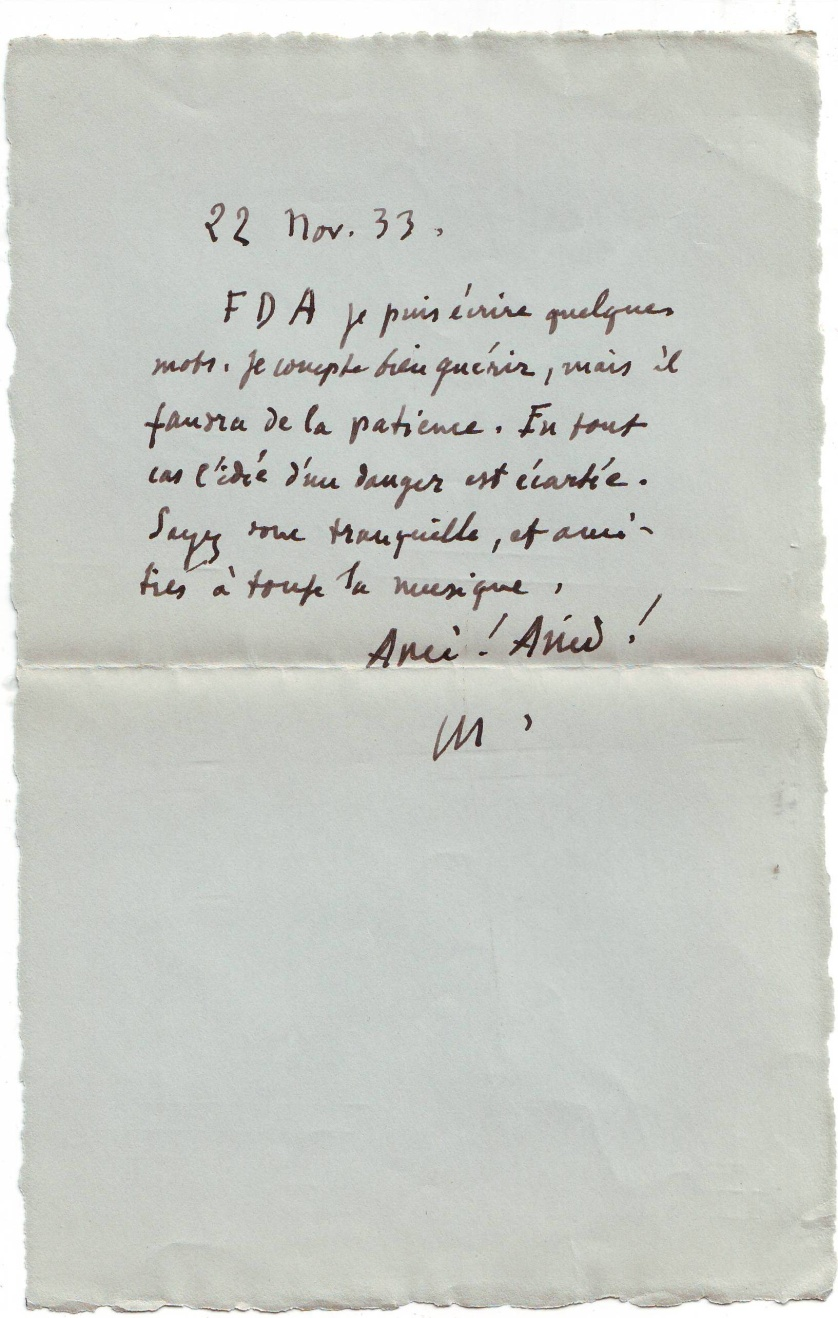 22 Nov. 33.
FDA je puis écrire quelques
mots. Je compte bien guérir, mais il
faudra de la patience. En tout
cas l'idée d'un danger est écartée.
Soyez donc tranquille, et ami-
tiés à toute la musique.
Ami ! Ami !